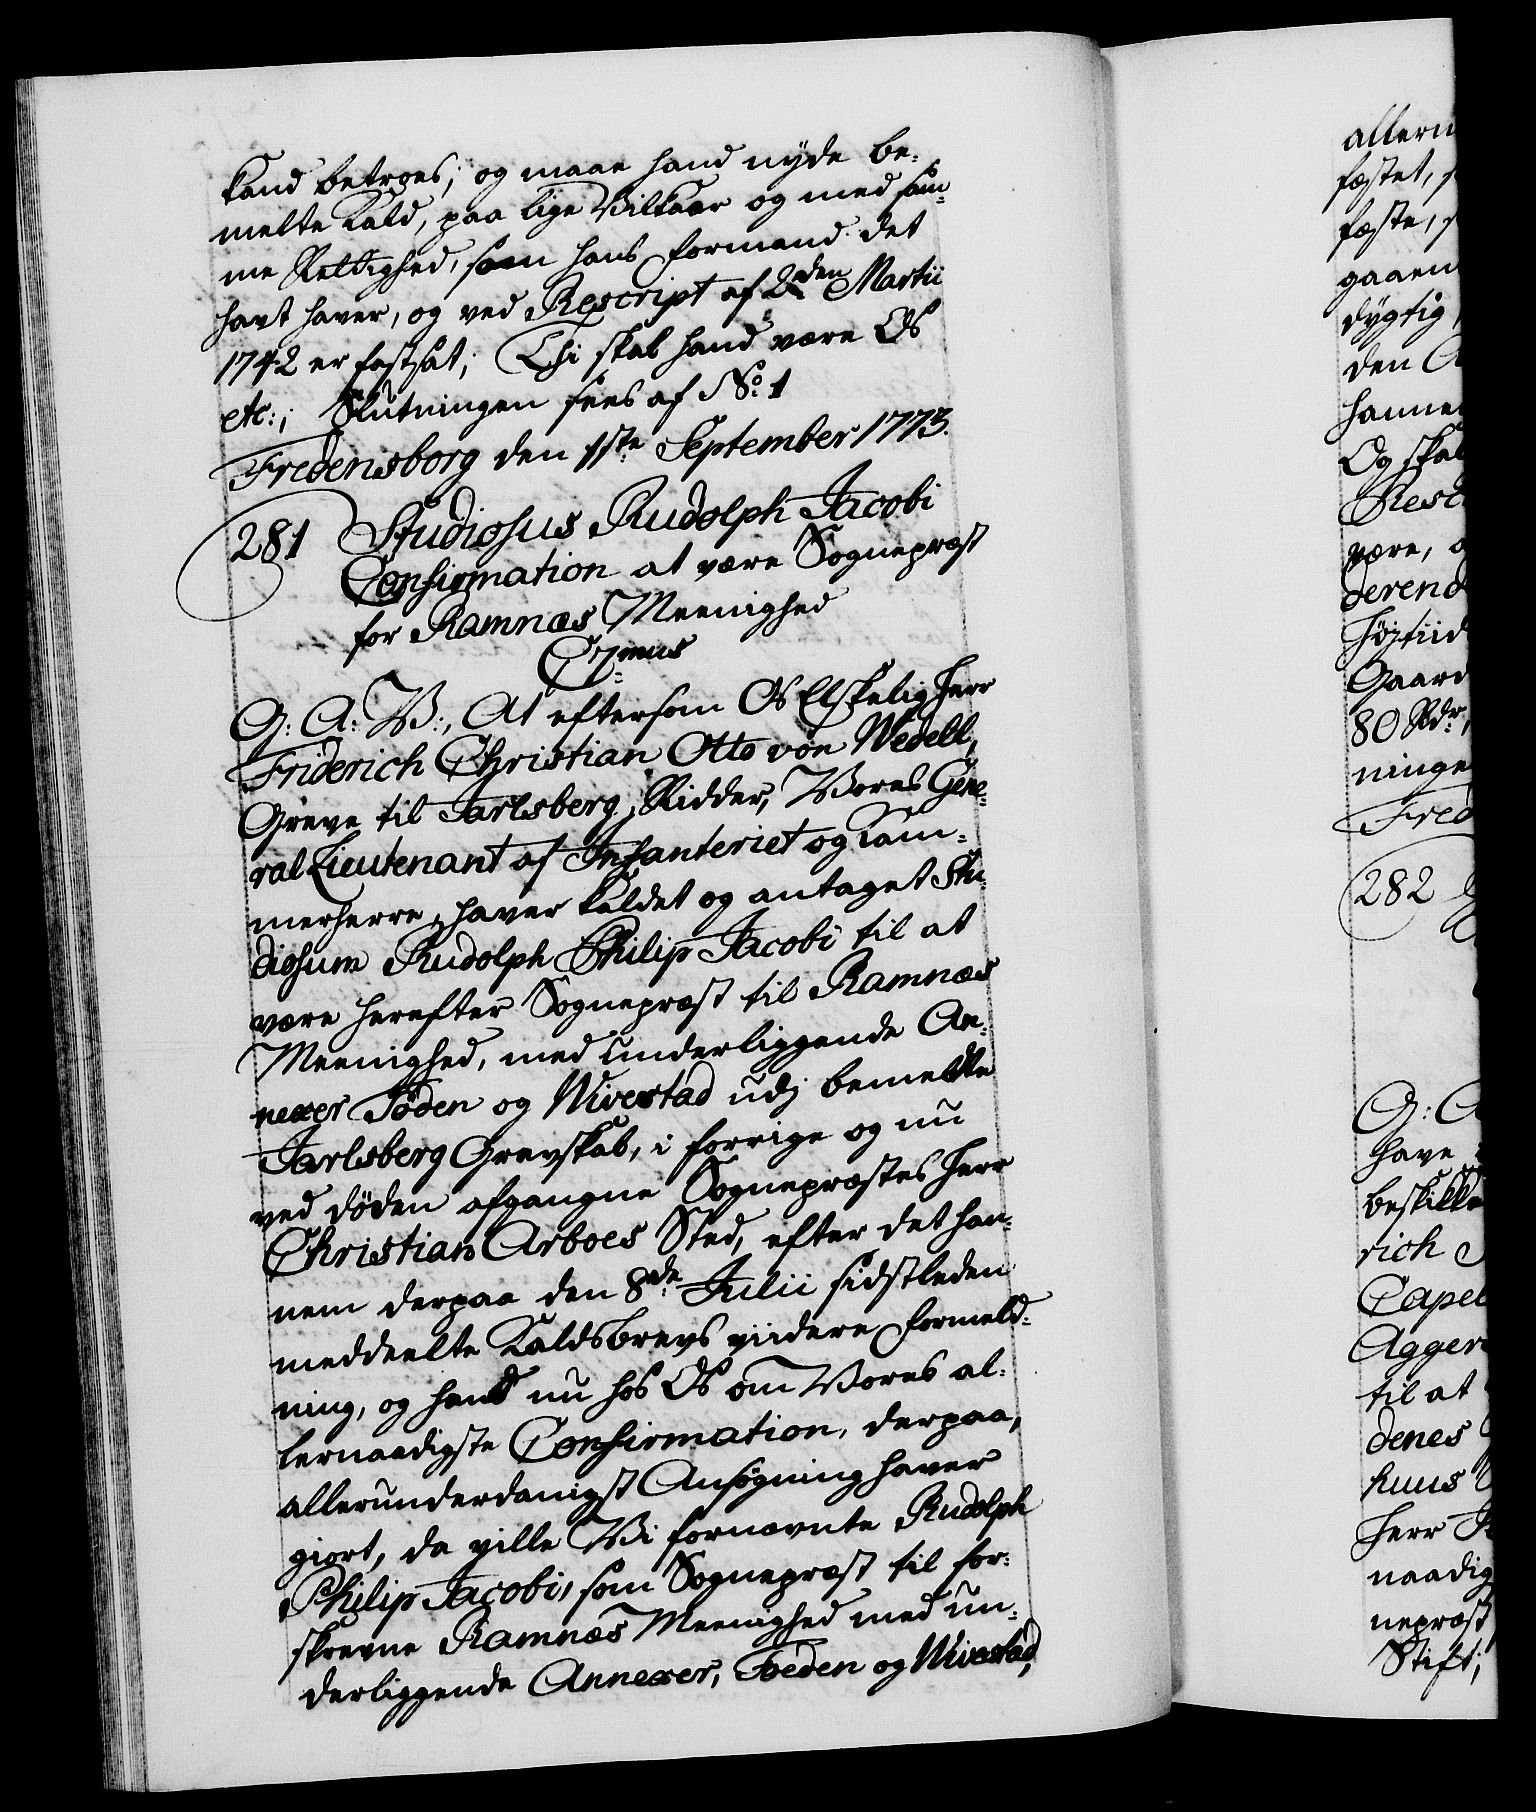 kand betroes; og maae hand nyde be-
melte Kald, paa lige Vilkaar og med sam-
me Rettighed, som hans Formand det
havt haver, og ved Rescript af 2den Martii
1742 er fastsat; Thi skal hand være Os
etc:; Slutningen sees af No: 1
Fredensborg den 1ste September 1773.
281 Studiosus Rudolph Jacobi
Confirmation at være Sognepræst
for Ramnæs Meenighed
C7mus
G: A: V:, At eftersom Os Elskelig Herr
Friderich Christian Otto von Wedell,
Greve til Jarlsberg, Ridder, Vores Gene-
ral Lieutenant af Infanteriet og Kam-
merherre, haver kaldet og antaget Stu-
diosum Rudolph Philip Jacobi til at
være herefter Sognepræst til Ramnæs
Meenighed, med underliggende An-
nexer Föden og Wivestad udj bemeldte
Jarlsberg Grevskab, i forrige og nu
ved döden afgangne Sognepræstes Herr
Christian Arboes Sted, efter det han-
nem derpaa den 8de Julii sidstleden
meddeelte Kaldsbrevs viidere Formeld-
ning, og hand nu hos Os om Vores al-
lernaadigste Confirmation, derpaa,
allerunderdanigst Ansøgning haver
giort, da ville Vi fornævnte Rudolph
Philip Jacobi, som Sognepræst til for-
skrevne Ramnæs Meenighed med un-
derliggende Annexer, Foeden og Wivestad,
allern
fæstet, s
fæste, s
gaaen
dygtig
den A
hanne
Og skal
Resc
være, o
derend
Høitiid
Gaard
80 Rdr,
ninge
Fred
282
G: A
have
beskikke
rich
Capel
Agger
til at
denes
huus
Herr J
naadig
nepræst
Stift;